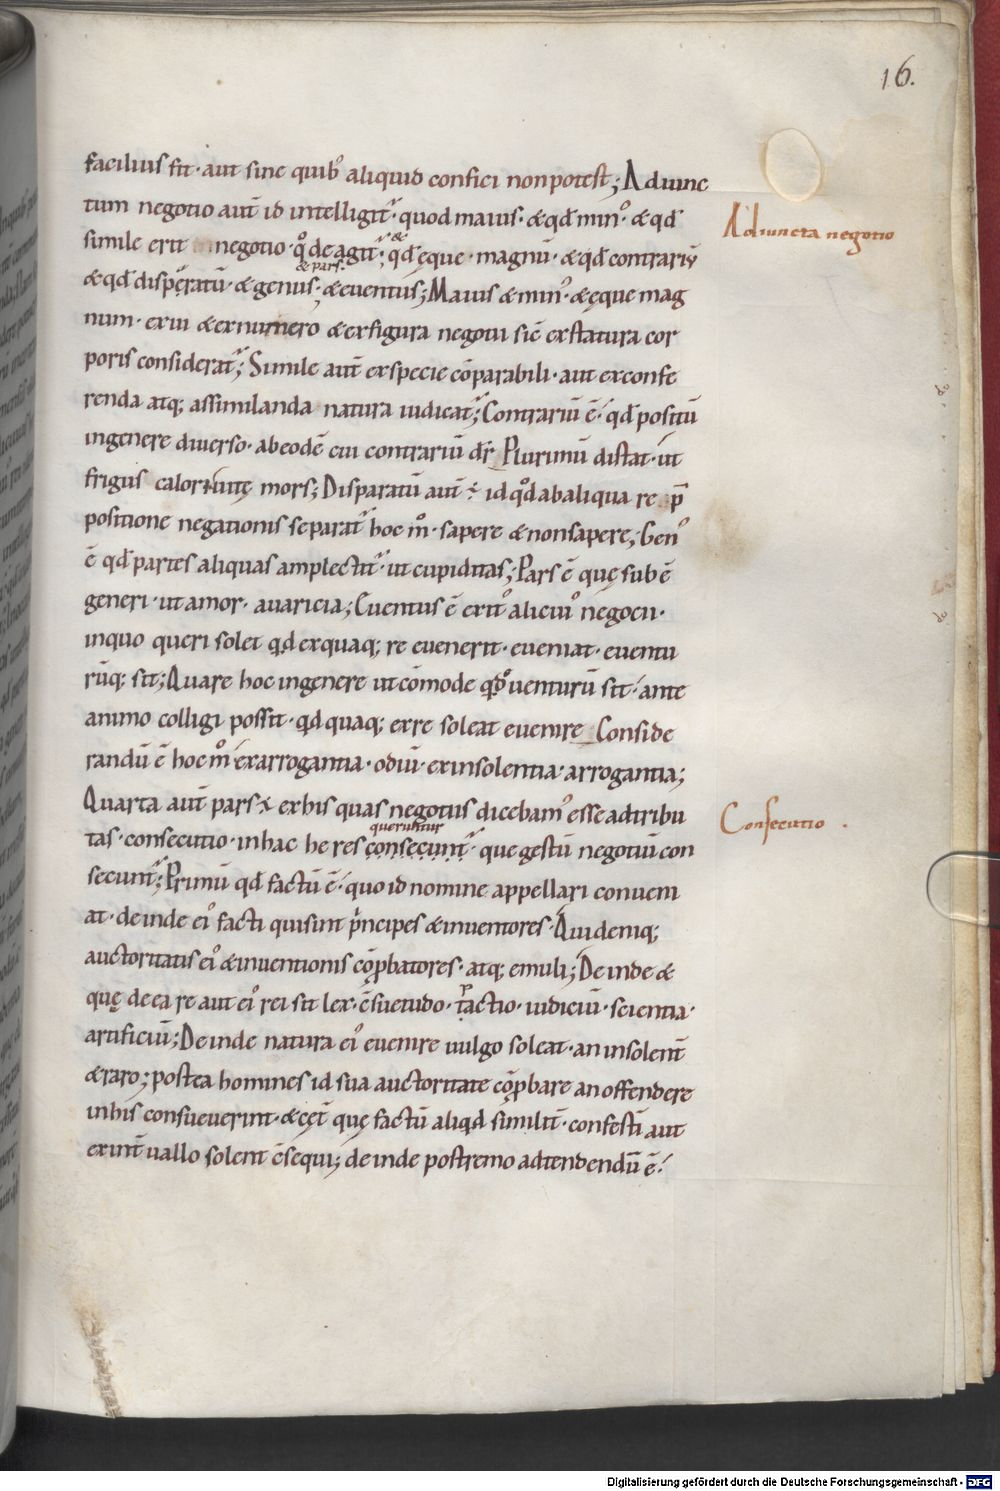 16.
facilius fit · aut sine quib᾽ aliquid confici non potest; Adiunc
tum negotio aut̄ id intelligit᷑ · quod maius · & qđ min᾽ · & qđ
Adiuncta negotio
simile erit negotio · qͦ de agit᷑; qđ & ęque · magnū · & qđ contrariū
& qđ disperatū · & genus · & pars · & euentus; Maius & min᾽ · & ęque mag
num · ex ui & ex numero & ex figura negotii sic̄ ex statura cor
poris considerat᷑; Simile aut̄ ex specie cōparabili · aut ex confe
renda atq; assimilanda natura iudicat᷑; Contrariū ē · qđ positū
in genere diuerso · ab eodē cui contrariū dr̄ Plurimū distat · ut
frigus calori uitę mors; Disparatū aut̄ ÷ id qđ ab aliqua re p̄
positione negationis separat᷑ hoc mͦ · sapere & non sapere; Gen᾽
ē qđ partes aliquas amplectit᷑ · ut cupiditas; Pars ē quę sub ē
generi · ut amor · auaricia; Euentus ē exit᾽ alicui᾽ negocii ·
in quo queri solet qd ex quaq; re euenerit · eueniat · euentu
rūq; sit; Quare hoc in genere ut cōmode qđ uenturū sit · ante
animo colligi possit · qd quaq; ex re soleat euenire Conside
randū ē hoc mͦ ex arrogantia · odiū · ex insolentia · arrogantia;
Quarta aut̄ pars ÷ ex his quas negotiis dicebam᾽ esse adtribu
Consecutio .
tas · consecutio · in hac he res consecunt᷑ queruntur · que gestū negotiū con
secunt᷑; Primū qđ factū ē · quo id nomine appellari conueni
at · deinde ei᾽ facti qui sint principes & inuentores · Qui deniq;
auctoritatis ei᾽ & inuentionis cōprobatores · atq; emuli; Deinde &
quę de ea re aut ei᾽ rei sit lex · c̄suetudo · pactio · iudiciū · scientia ·
artificiū; Deinde natura ei᾽ euenire uulgo soleat · an insolent̄
& raro; postea homines id sua auctoritate cōprobare an offendere
in his consueuerint · & cęt̄ quę factū aliqd similit̄ · confestī aut
ex int̄uallo solent c̄sequi; deinde postremo adtendendū ē ·
Digitalisierung gefördert durch die Deutsche Forschungsgemeinschaft · DFG